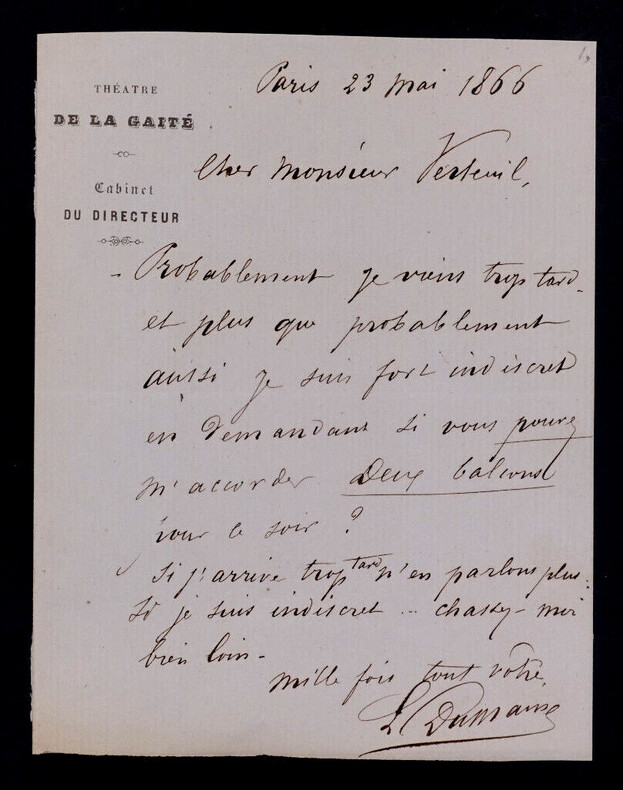 THÉATRE
DE LA GAITÉ
Cabinet
DU DIRECTEUR
Paris 23 mai 1866
Cher Monsieur Verteuil,
- Probablement je viens trop tard -
et plus que probablement
aussi je suis fort indiscret
en demandant si vous pouvez
m'accorder Deux balcons
pour ce soir ?
Si j'arrive trop tard n'en parlons plus :
Si je suis indiscret ... chassez-moi
bien loin -
mille fois tout vôtre
L Dumaine